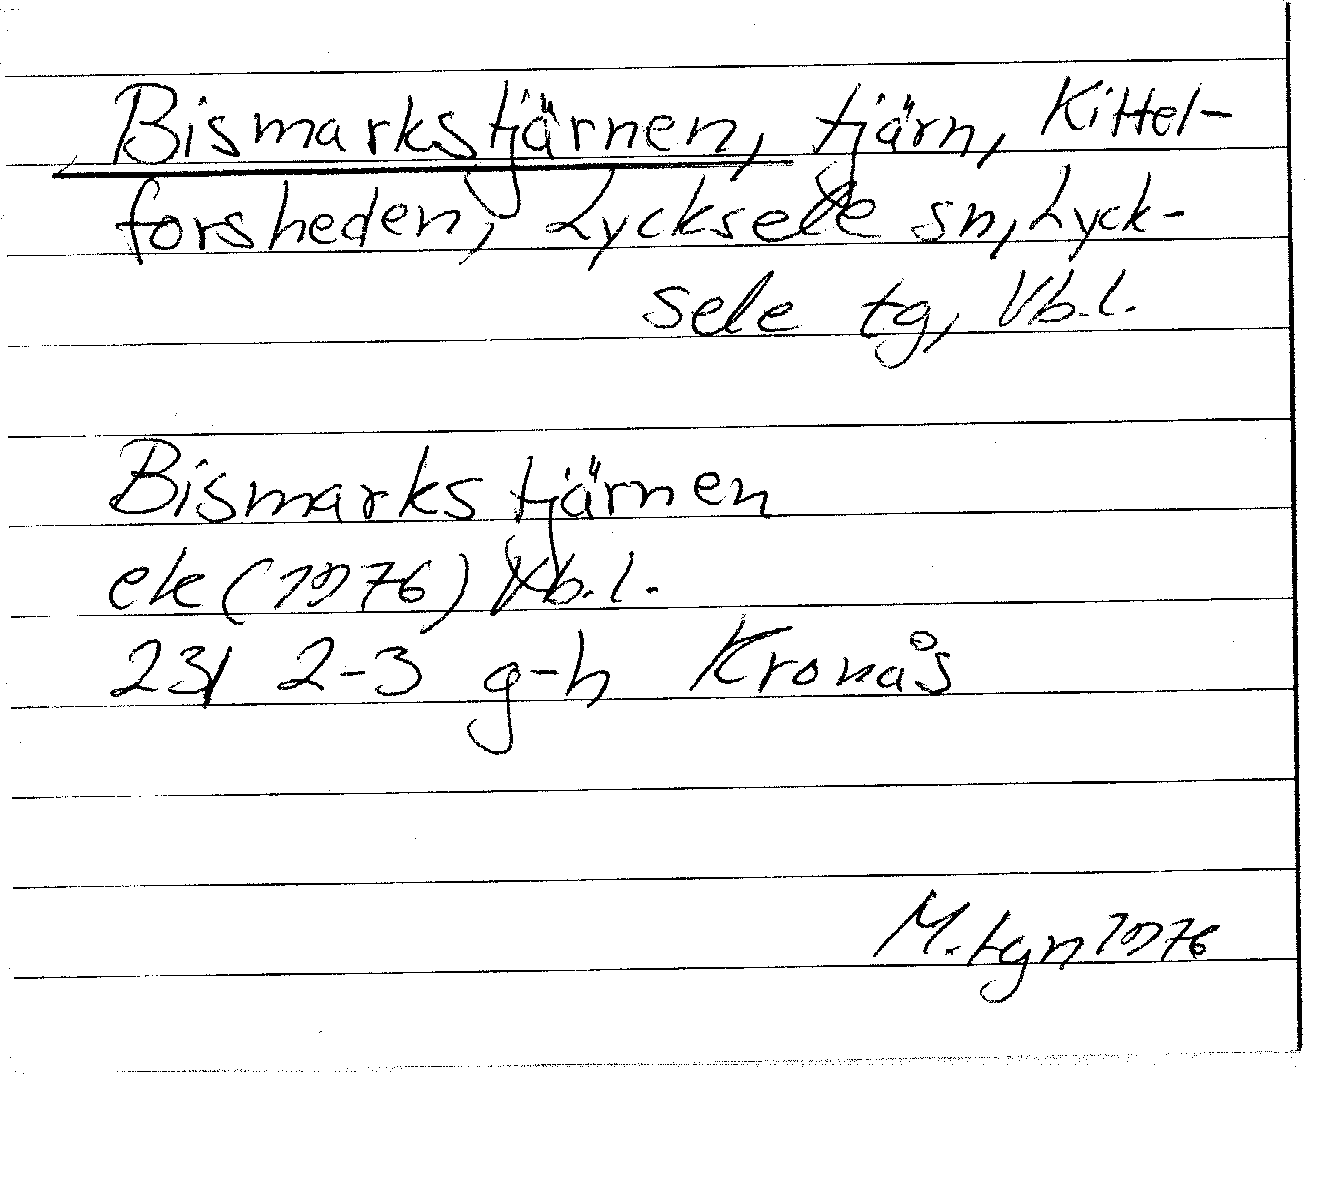 Bismarkstjärnen, tjärn, Kittel-
forsheden, Lycksele sn, Lyck-
sele tg, Vb.l.
Bismarkstjärnen
ek (1976) Vb.l.
23I 2-3 g-h Kronås
M. tgn 1976